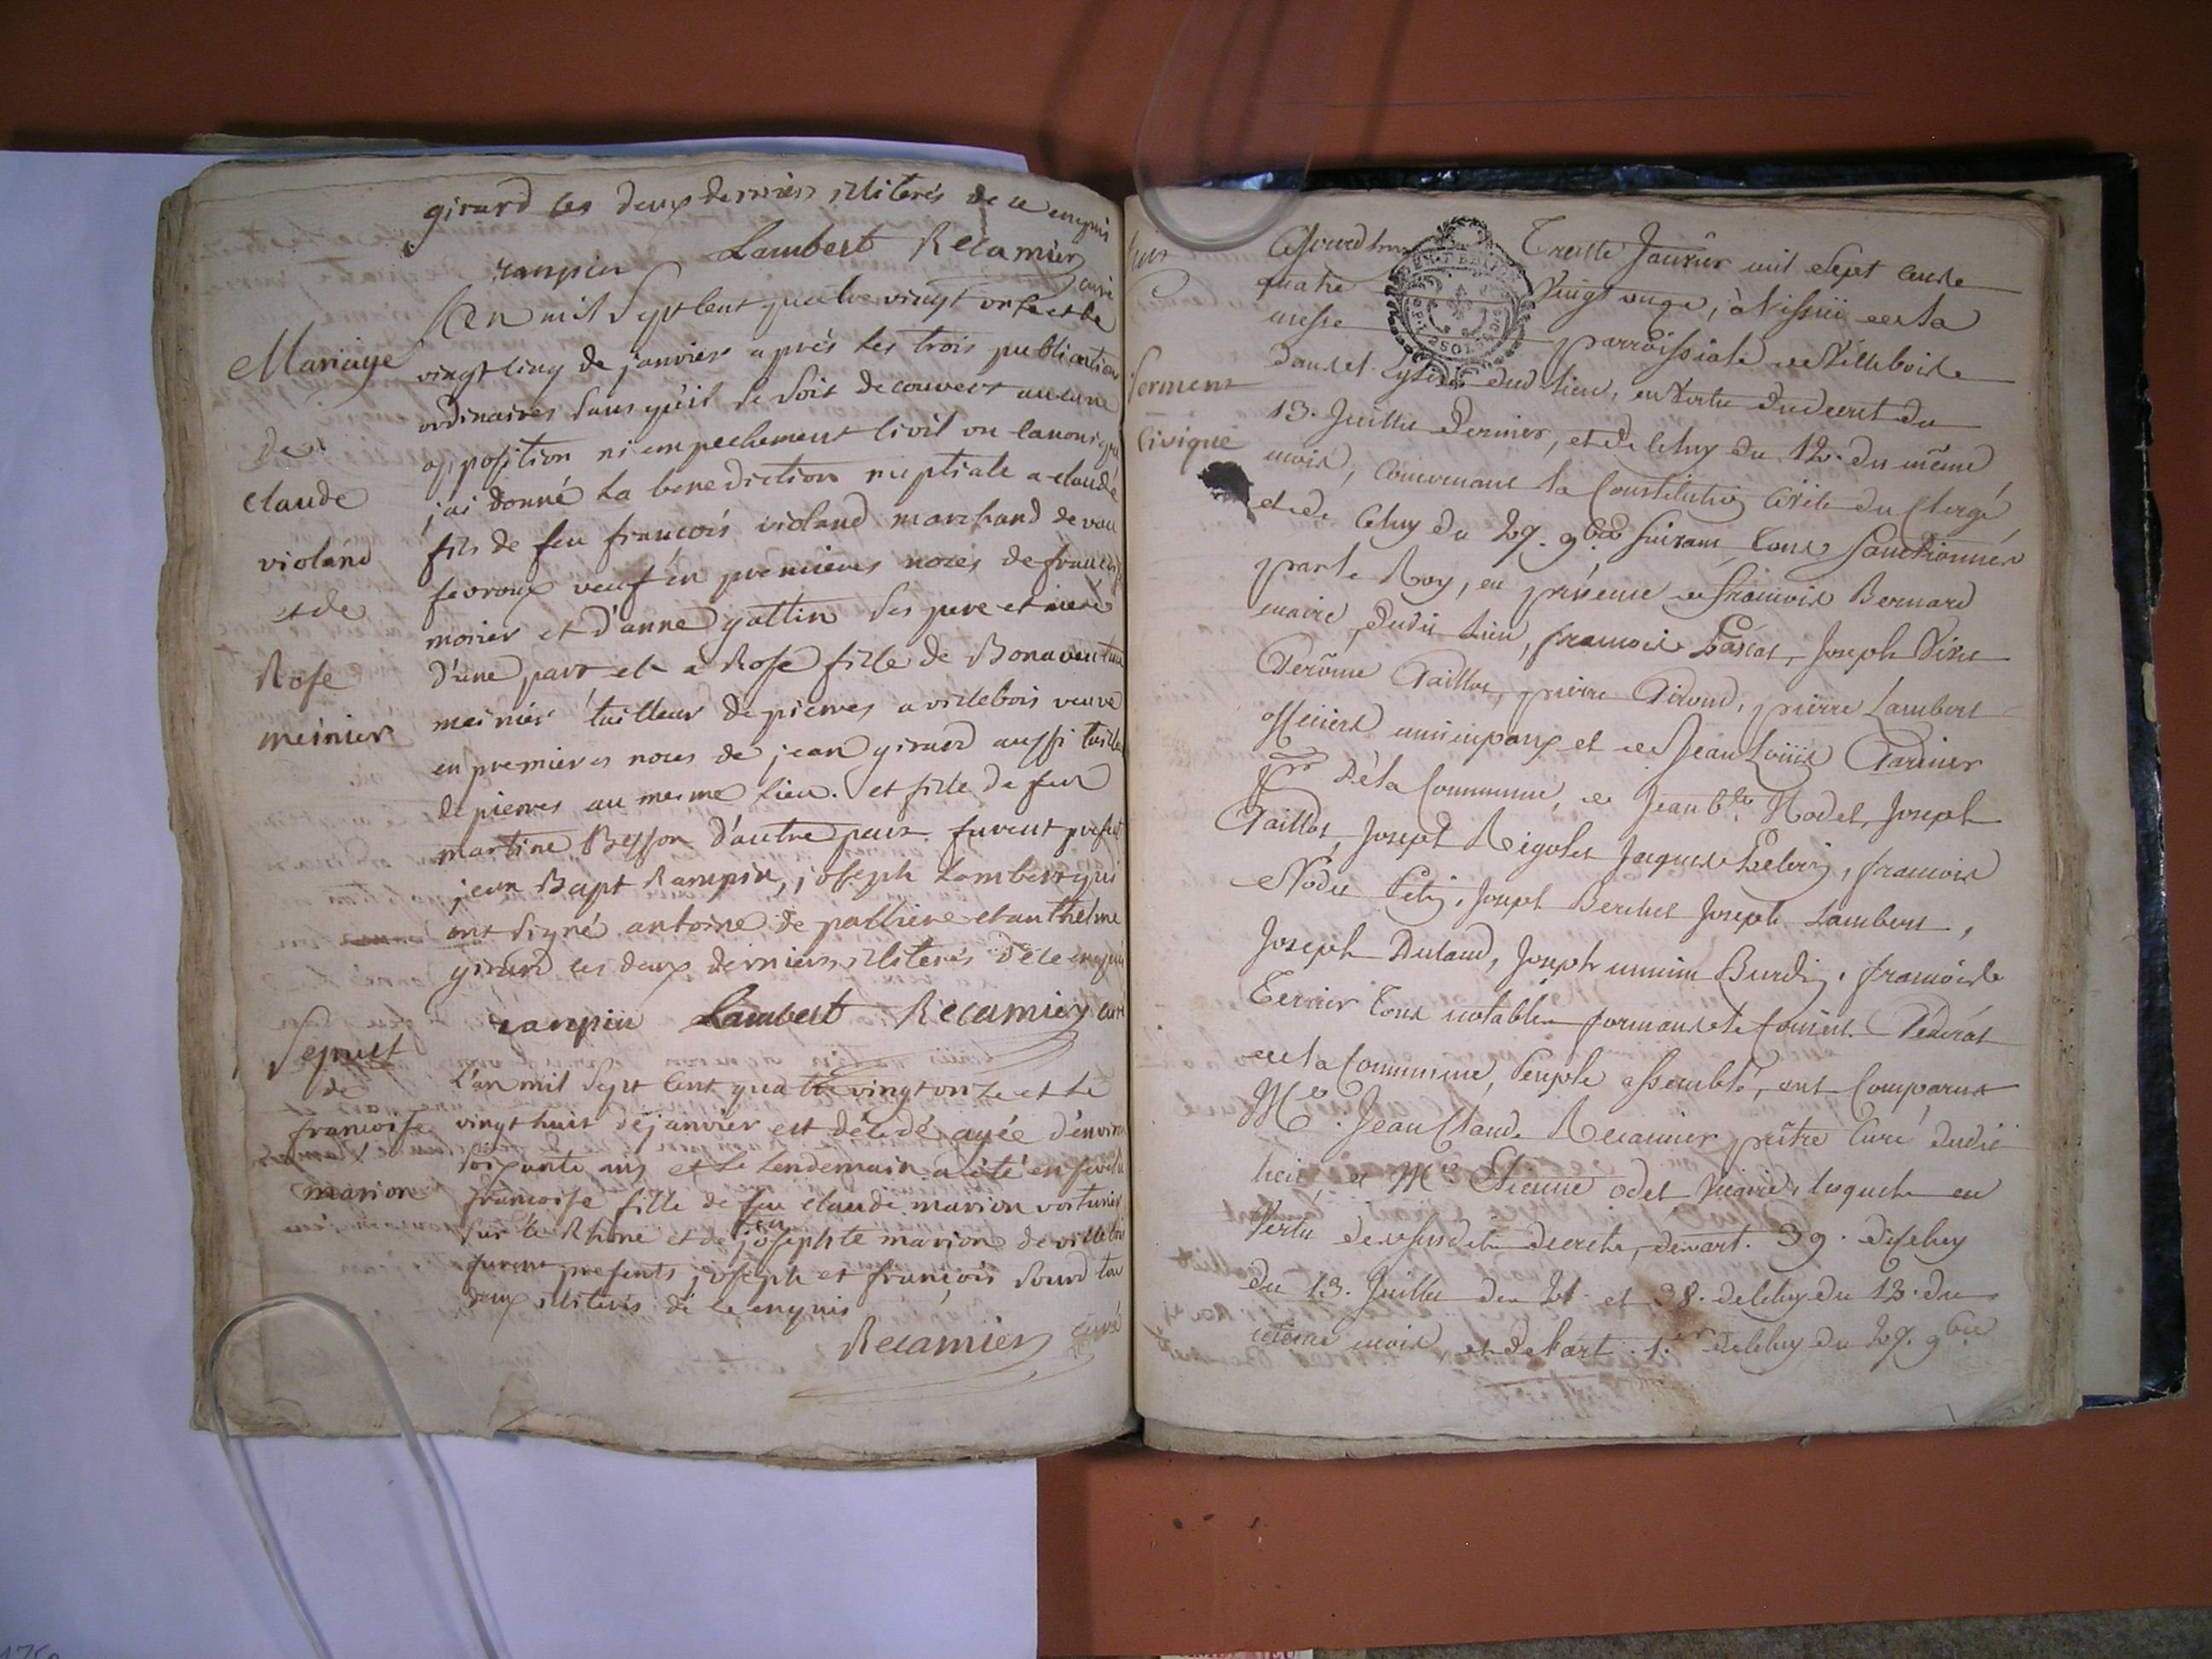 girard les deux derniers illiterés de ce enquis
rampin Lambert Recamier curé
Mariage
de
claude
violand
et de
Rose
meinier
L'an mil sept cent quatre vingt onze et le
vingt cinq de janvier après les trois publication
ordinaires sans qu'il se soit decouvert aucune
opposition ni empechement civil ou canonique
j'ai donné la benediction nuptiale a claude
fils de feu francois violand marchand de
veuf en premieres noces de
monier et d'anne gallin ses pere et mere
d'une part et a Rose fille de Bonaventure
meinier tailleur de pierres a villebois veuve
en premieres noces de jean girard aussi taille
de pierres au mesme lieu. et fille de feu
martine Besson d'autre part furent present
jean Bapt Rampin, joseph Lambert qui
ont signé antoine de pallieve et anthelme
girard les deux derniers illiterés de ce enquis
rampin Lambert Recamier curé
Sepult
de
francoise
marion
L'an mil sept cent quatre vingt onze et le
vingt huit de janvier est décédé agée d'environ
soixante ans et le lendemain a été enseveli
francoise fille de feu claude marion voiturier
sur le Rhone et de feu josephte marion de villebois
furent presents joseph et françois sourd tou
deux illiterés de ce enquis
Recamier curé
Serment
Civique
Aujourd'huy Trente Janvier mil Sept cents
quatre Vingt onze, à l'issüe de la
messe parroissiale de Villebois
dans l'Eglise dud. lieu, en Vertu du decret du
13. Juillet Dernier, et de Celuy du 12. du même
mois, Concernant la Constitution Civile du Clergé
et de Celuy du 27. 9bre Suivant tous Sanctionnés
par le Roy, en présence de francois Bernard
maire dudit Lieu, francois Pascal, Joseph
Jerôme Taillet, pierre Girond, pierre Lambert
officiers municipaux et de Jean Loüis
pr De la Commune, de Jean Bte Nodet, Joseph
Taillet, Joseph Rigolet Jacques, francois
Nodet, Joseph Berchet Joseph Lambert,
Joseph Duland, Joseph Burdin, francois
Terrier Tous notables formant le Conseil Général
de la Commune, Peuple assemblé, ont Comparus
Me. Jean Claude Recamier prêtre Curé dudit
lieu, et Me Etienne odet Vicaire, lesquels en
Vertu de susdits decrets, de l'art. 39. de Celuy
du 13. Juillet des 21. et 38. de Celuy du 12. du
même mois, et de l'art. 1.er de Celuy du 27. 9bre